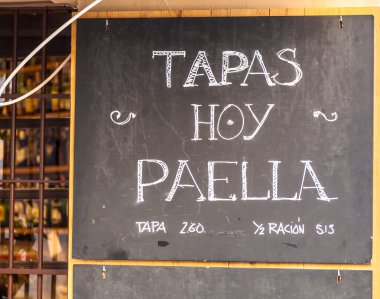 TAPAS
HOY
PAELLA
TAPA 2.60. ½ RACIÓN 5'5